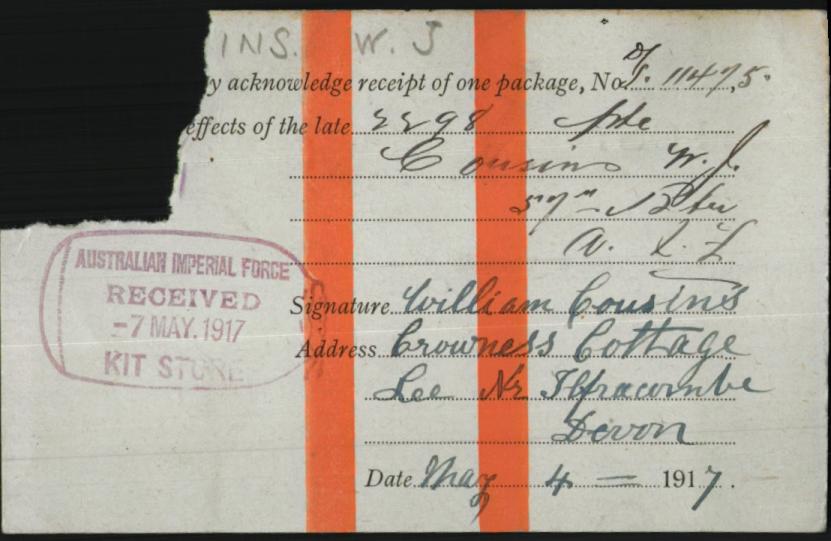 INS. W. J
y acknowledge receipt of one package, No. 11475.
effects of the late 2298 Pte
Cousins W. J.
57th Btn
A. I. F
AUSTRALIAN IMPERIAL FORCE
RECEIVED
-7 MAY. 1917
KIT STORE
Signature William Cousins
Address Crowness Cottage
Lee Nr Ilfracombe
Devon
Date May 4 — 1917.